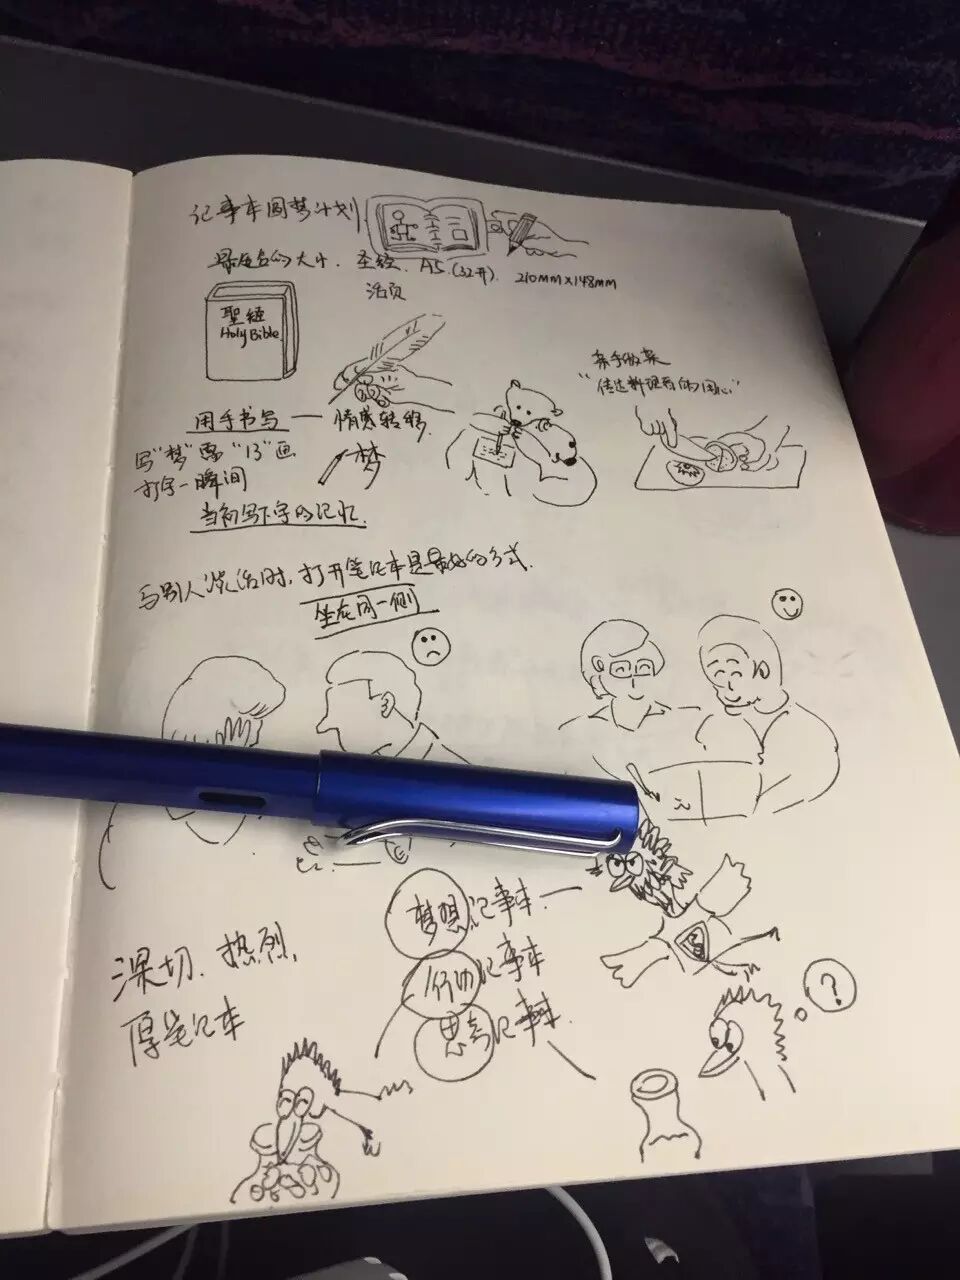 记事本圆梦计划
最适合的大小. 圣经. A5.(32开). 210mm×148mm
活页
聖經
Holy Bible
亲手做菜
“传达料理者的用心”
用手书写 — 情感转移.
写“梦”要“13”画
打字一瞬间
梦
当初写下字的记忆.
与别人谈话时,打开笔记本是最好的方式.
坐在同一侧
梦想记事本.
行动记事本
思考记事本.
深切. 热烈.
厚笔记本
?